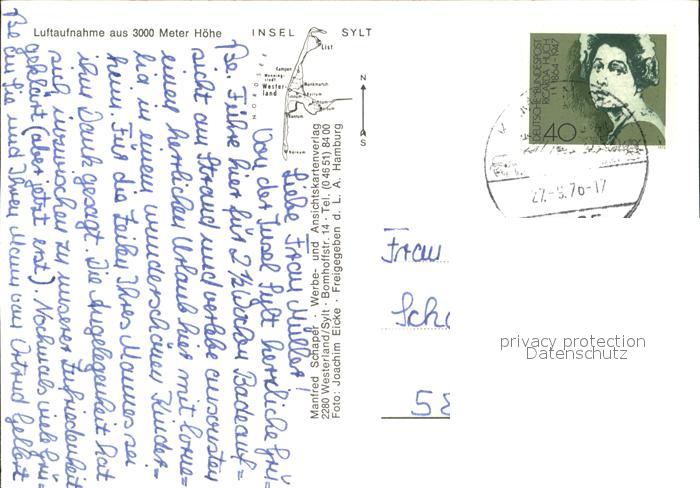 Luftaufnahme aus 3000 Meter Höhe
INSEL SYLT
List
Kampen
Wester-
land
Keitum
Hörnum
N
S
NORDSEE
DEUTSCHE BUNDESPOST
RICARDA HUCH
1864-1947
40
27.-5.76-17
Liebe Frau Müller!
Von der Insel Sylt herzliche Grü=
ße. Führe hier für 2 1/2 Wochen Badeauf=
sicht am Strand und verlebe ansonsten
einen herrlichen Urlaub hier mit
in einem wunderschönen Kinder=
heim. Für die Zeilen Ihres Mannes sei
ihm Dank gesagt. Die Angelegenheit hat
sich inzwischen zu unserer Zufriedenheit
geklärt (aber jetzt erst). Nochmals viele Grü=
ße an Sie und Ihren Mann von Astrid Gellert
Manfred Schaper · Werbe- und Ansichtskartenverlag
2280 Westerland/Sylt · Bomhoffstr. 14 · Tel. (04651) 8400
Foto: Joachim Eicke · Freigegeben d. L. A. Hamburg
Frau
58
privacy protection
Datenschutz